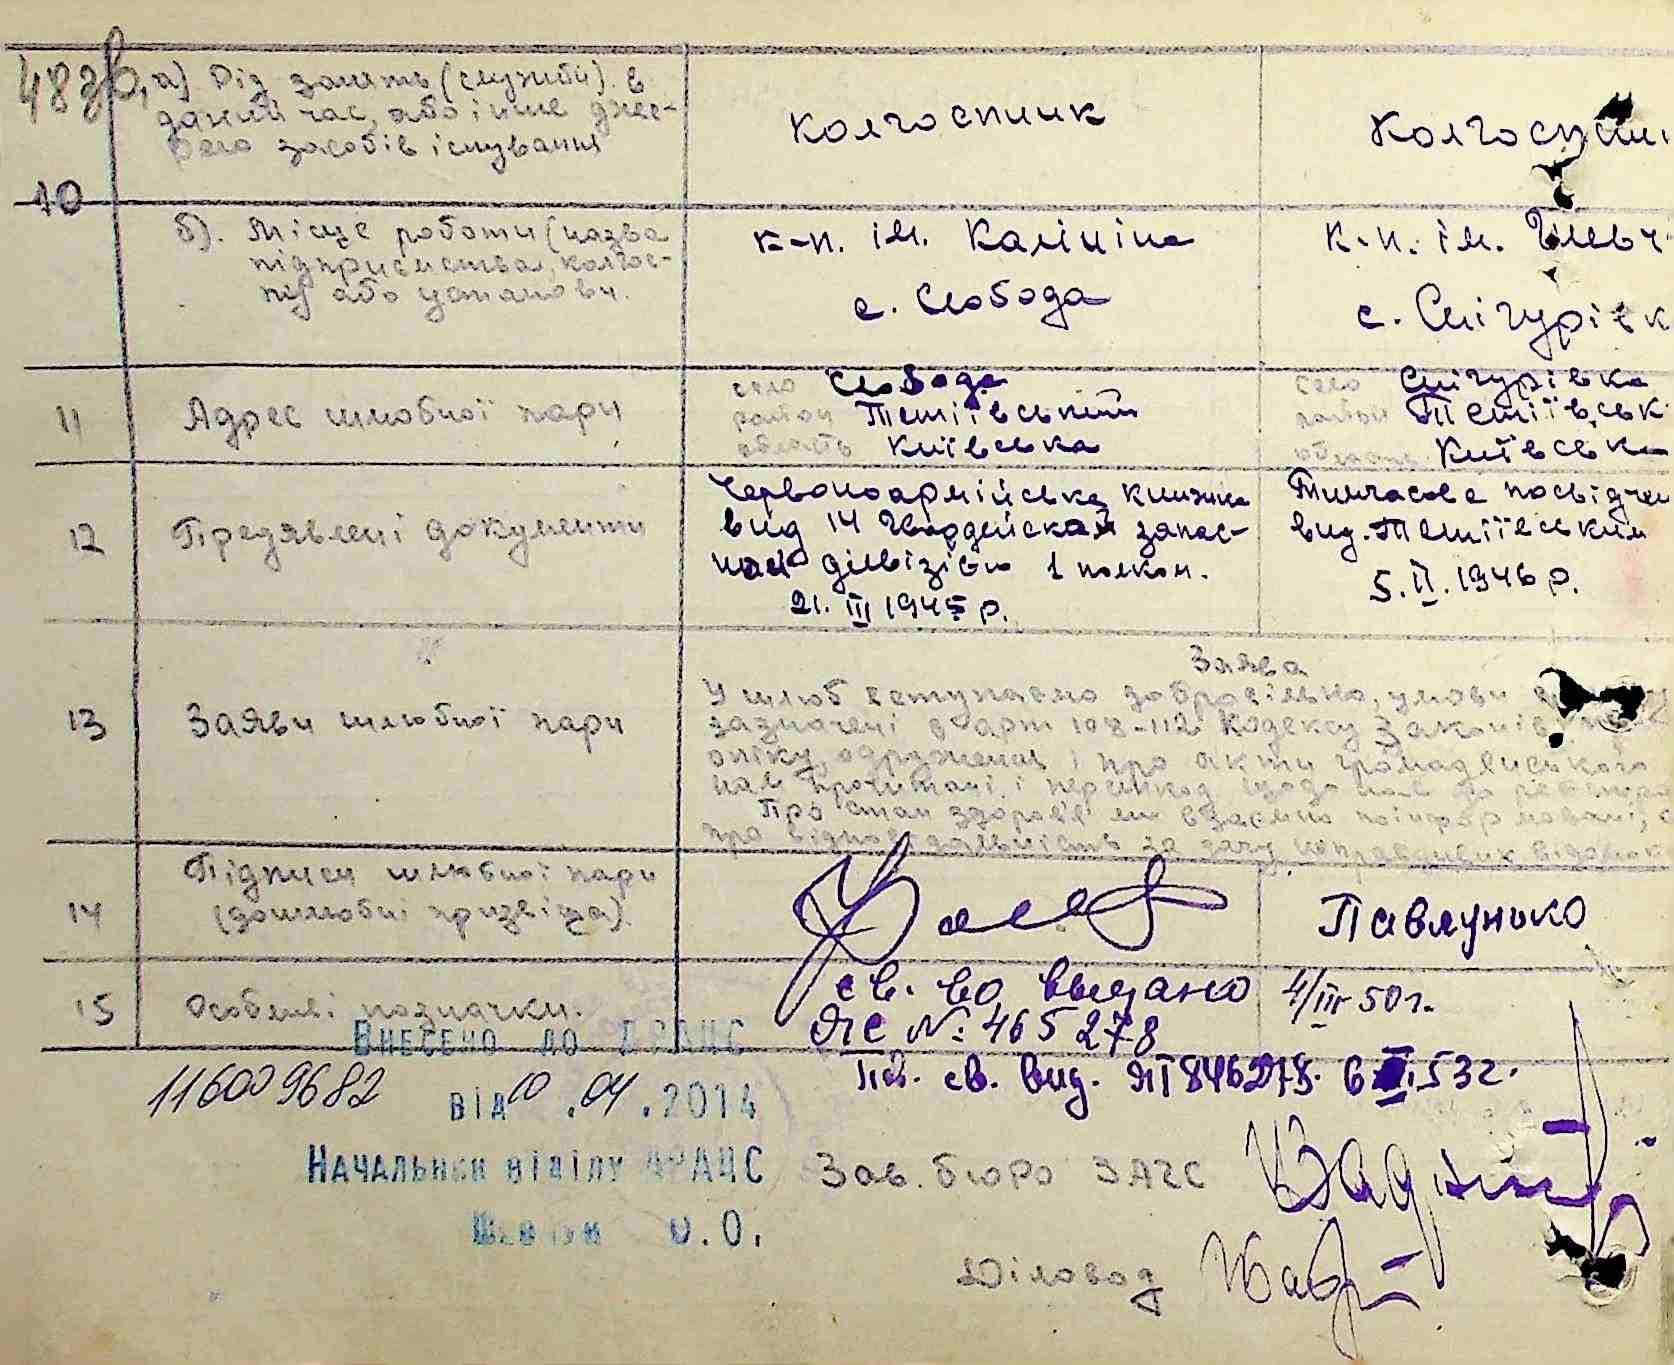 48зв, а) Рід занять (служби) в
даний час, або інше джер-
ело засобів існування
Колгоспник
Колгоспни
10
б). Місце роботи (назва
підприємства, колгос-
пу або установи.
к-п. ім. Калініна
с. Слобода
к-п. ім. Шевч
с. Снігурівк
11 Адрес шлюбної пари
село Слобода
район Тетіївський
область Київська
село Снігурівка
район Тетіївськ
область Київська
12 Предявлені документи
Червоноармійська книжка
вид 14 Гвардейской запас-
ной дивізією 1 полком.
21. III 1945 р.
Тимчасове посвідчен
вид. Тетіївським
5. II. 1946 р.
13 Заяви шлюбної пари
Заява
У шлюб вступаємо добровільно, умови
зазначені в арт 108-112 Кодексу Законів про
опіку, одруження і про акти громадянського
нам прочитані і перешкод щодо нас до реєстра
Про стан здоров'я ми взаємно поінформовані,
про відповідальність за дачу неправдивих відомост
14 Підписи шлюбної пари
(дошлюбні прізвища).
Павлунько
15 Особливі позначки.
св. во выдано 4/III 50 г.
ЯЕ № 465278
Пов. св. вид. ЯП 846278. 6 II. 53 г.
Внесено до ДРАЦС
116009682 від 10 .04 .2014
Начальник відділу ДРАЦС
О.О.
Зав. бюро ЗАГС
Діловод